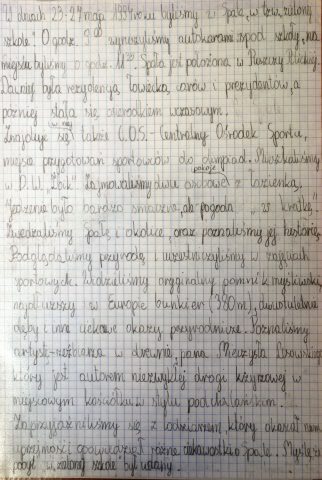 W dniach 23-27 maja 1994 roku byliśmy w Spale, w tzw. "zielonej
szkole". O godz. 9⁰⁰ wyruszyliśmy autokarami spod szkoły, na
miejscu byliśmy o godz. 11³⁰. Spała jest położona w Puszczy Pilickiej.
Dawniej była rezydencją łowiecką carów i prezydentów, a
później stała się ośrodkiem wczasowym.
Znajduje się w niej także C.O.S. - Centralny Ośrodek Sportu,
miejsce przygotowań sportowców do olimpiad. Mieszkaliśmy
w D.W. "Żbik". Zajmowaliśmy dwu osobowe pokoje z łazienką,
jedzenie było bardzo smaczne, ale pogoda "w kratkę".
Zwiedzaliśmy Spałę i okolice, oraz poznaliśmy jej historię.
Podglądaliśmy przyrodę i uczestniczyliśmy w zajęciach
sportowych. Widzieliśmy oryginalny pomnik myśliwski,
najdłuższy w Europie bunkier (380m), dwustuletnie
dęby i inne ciekawe okazy przyrodnicze. Poznaliśmy
artystę-rzeźbiarza w drewnie, pana Mieczysła
który jest autorem niezwykłej drogi krzyżowej w
miejscowym kościółku w stylu podhalańskim.
Zaprzyjaźniliśmy się z łodzianinem, który okazał nam
uprzejmość i opowiedział różne ciekawostki o Spale. Myślę, że
pobyt w "zielonej szkole" był udany.